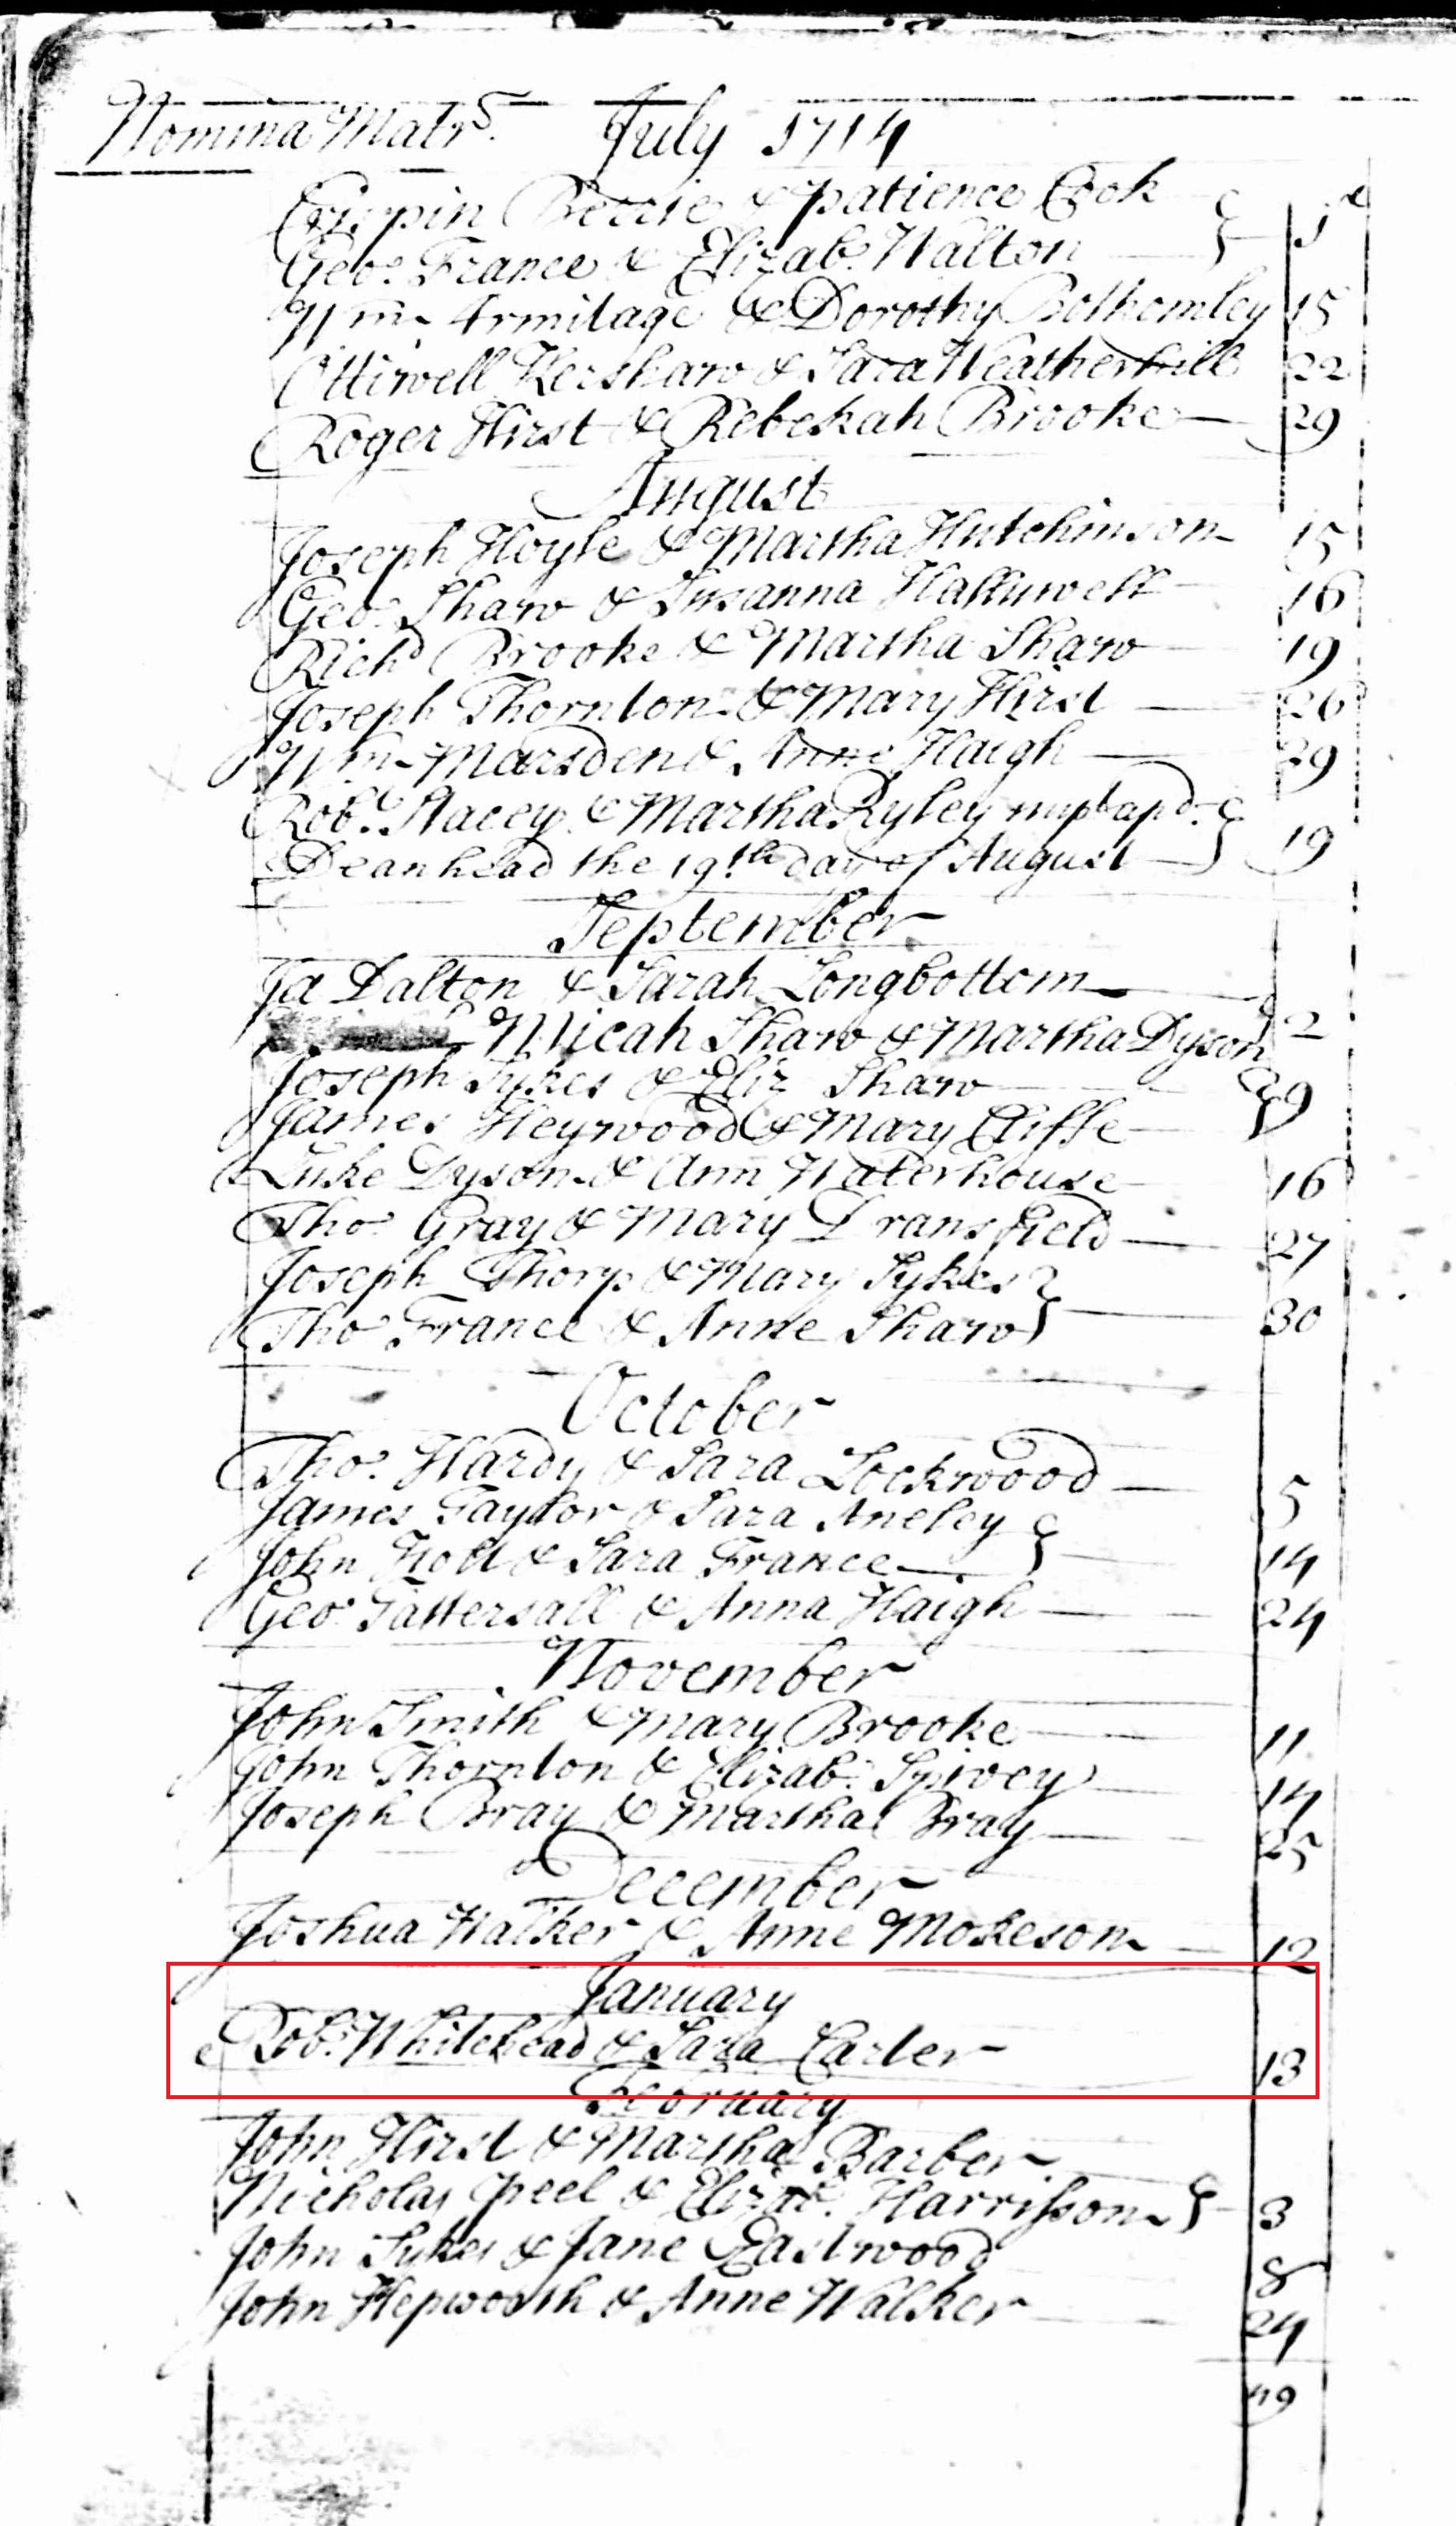 Nomina Matr^s. July 1714
Crispin Bettie & patience Cook
Geo: France & Elizab: Walton 1
Wm Armitage & Dorothy Bothomley 15
Ottiwell Kershaw & Sara Weatherhill 22
Roger Hirst & Rebekah Brooke 29
August
Joseph Hoyle & Martha Hutchinson 15
Geo: Shaw & Susanna Halliwell 16
Richd Brooke & Martha Shaw 19
Joseph Thornton & Mary Hirst 26
Wm Marsden & Anne Haigh 29
Rob: Stacey & Martha Ryley nupt apd
Deanhead the 19th day of August 19
September
Ja Dalton & Sarah Longbottom
Micah Shaw & Martha Dyson 2
Joseph Sykes & Eliz Shaw
James Heywood & Mary Cliffe 9
Luke Dyson & Ann Waterhouse 16
Tho Gray & Mary Dransfield 27
Joseph Thorp & Mary Sykes
Tho France & Anne Shaw 30
October
Tho: Hardy & Sara Lockwood 5
James Taylor & Sara Aneley
John & Sara France 14
Geo: Tattersall & Anna Haigh 24
November
John Smith & Mary Brooke 11
John Thornton & Elizab: Spivey 14
Joseph Bray & Martha Bray 25
December
Joshua Walker & Anne Mokeson 12
January
Rob: Whitehead & Sara Carter 13
February
John Hirst & Martha Barber
Nicholas Peel & Elizab: Harrisson 3
John Sykes & Jane Eastwood 8
John Hepworth & Anne Walker 24
49